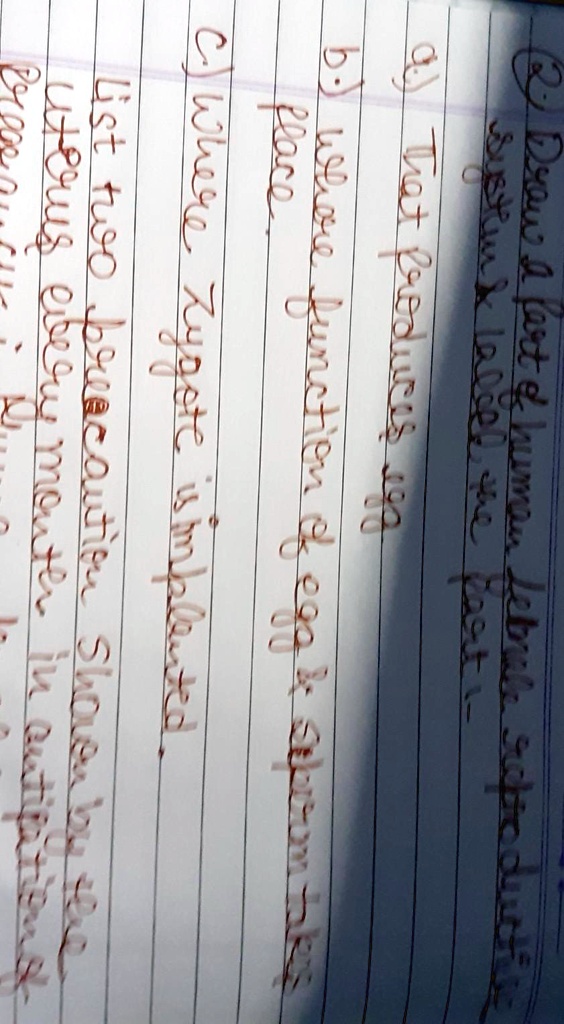 Q.) Draw a part of human female reproductive
system & label the part :-
a.) That produces egg
b.) where function of egg & sperm takes
place.
c.) Where Zygote is implented.
List two precaution shown by the
uterus every month in antipation of